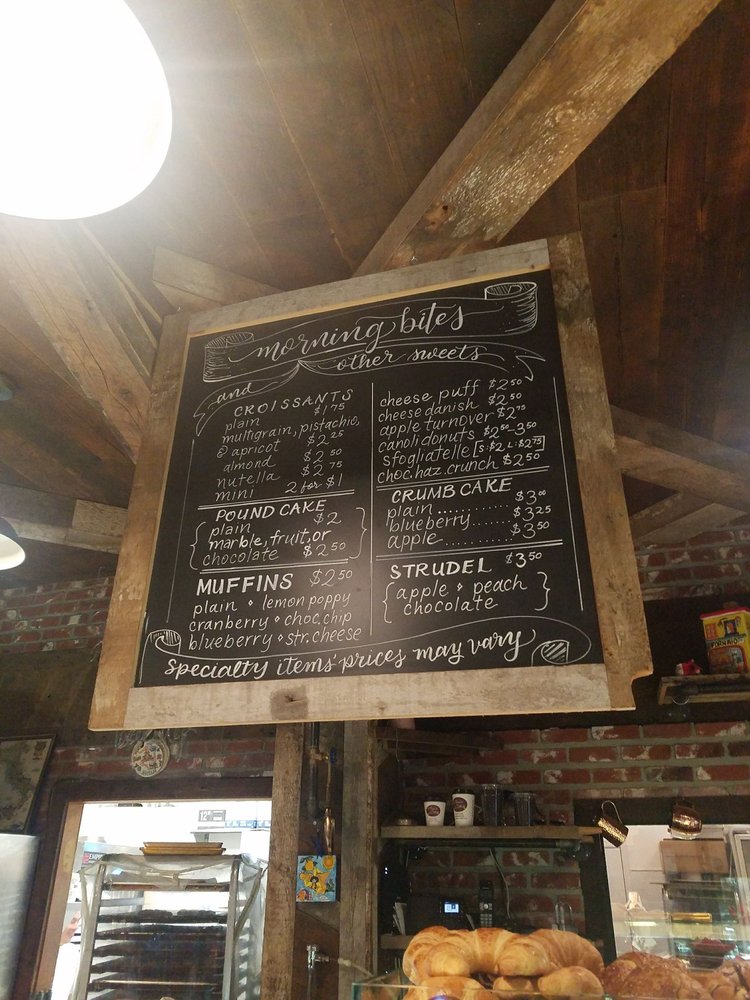 morning bites
and other sweets
CROISSANTS
plain $1.75
multigrain, pistachio,
@ apricot $2.25
almond $2.50
nutella $2.75
mini 2 for $1
POUND CAKE
plain $2
marble, fruit, or
chocolate $2.50
MUFFINS $2.50
plain • lemon poppy
cranberry • choc.chip
blueberry • str.cheese
cheese puff $2.50
cheese danish $2.50
apple turnover $2.75
canoli donuts $2.50-3.50
sfogliatelle [S:$2 L:$2.75]
choc.haz.crunch $2.50
CRUMB CAKE
plain.......... $3.00
blueberry....... $3.25
apple........... $3.50
STRUDEL $3.50
apple • peach
chocolate
Specialty items' prices may vary